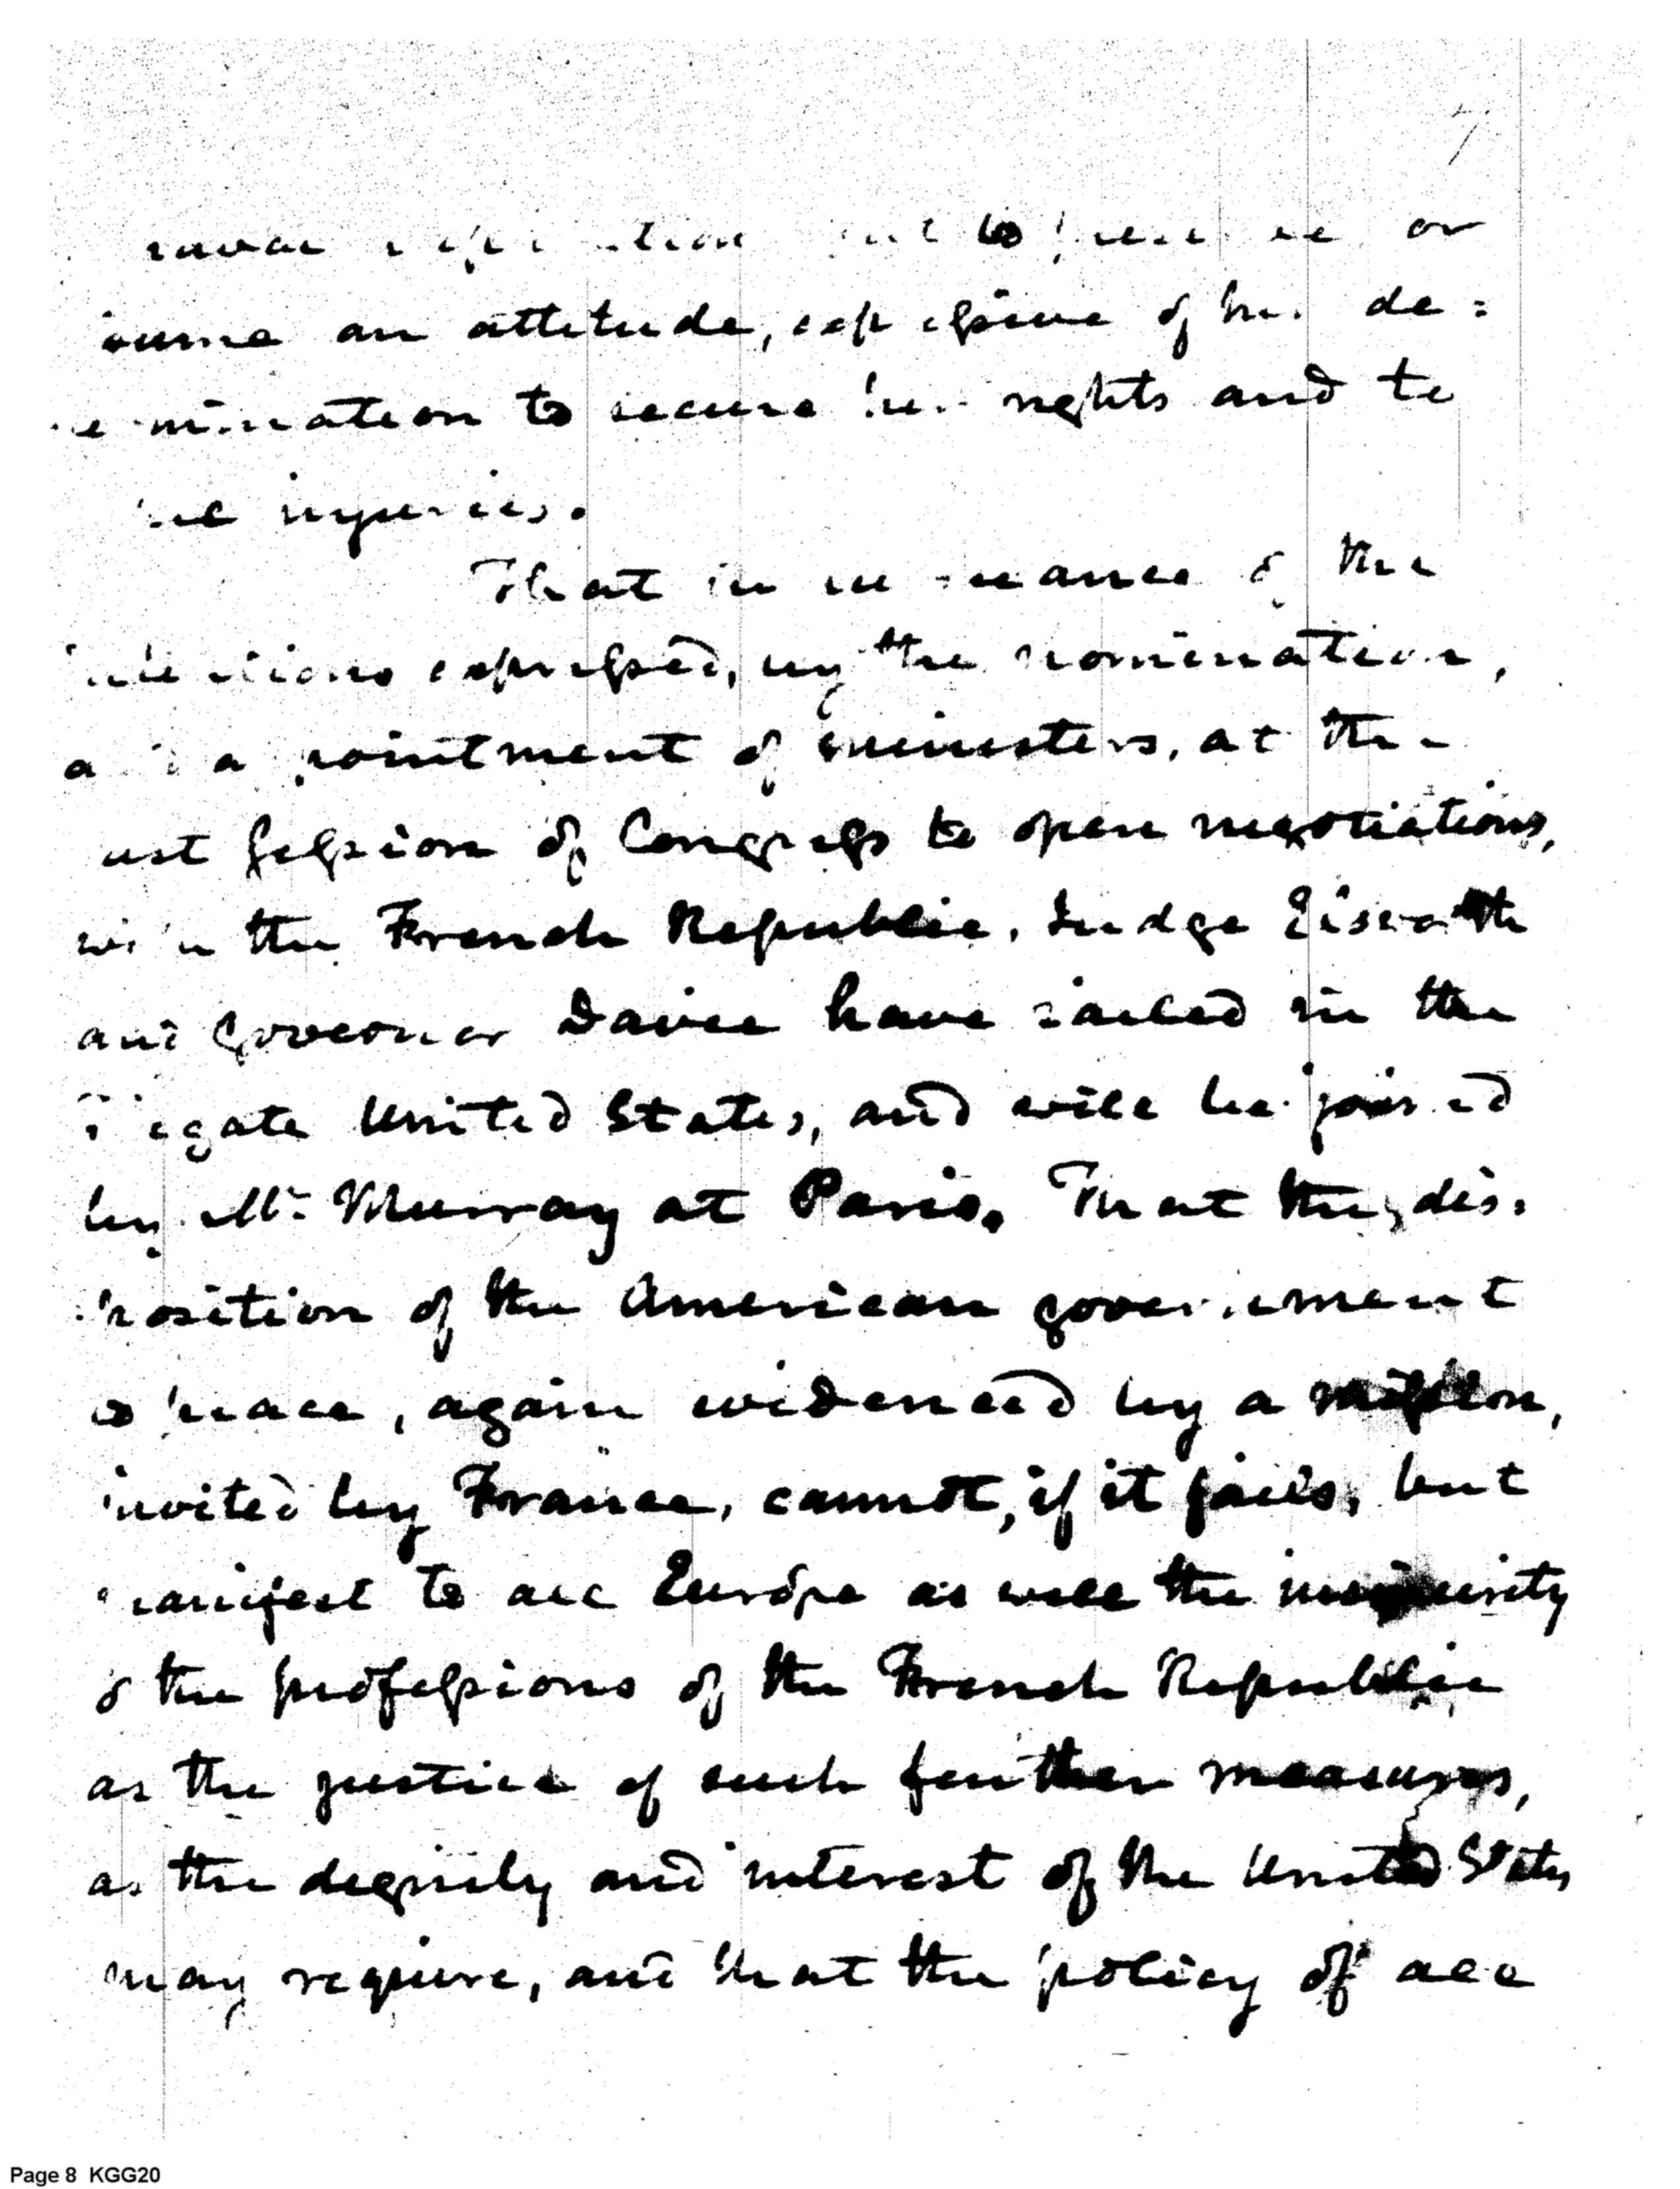 7
or
an attitude, expressive of her de=
termination to secure her rights and to
injuries.
That in pursuance of the
intentions expressed, by the nomination,
and appointment of ministers, at the
last Session of Congress to open negotiations,
with the French Republic, Judge Elsworth
and Governor Davie have sailed in the
Frigate United States, and will be joined
by Mr. Murray at Paris. That the dis-
position of the American government
to peace, again evidenced by a mission,
invited by France, cannot, if it fails, but
manifest to all Europe as well the insincerity
of the professions of the French Republic
as the justice of such further measures,
as the dignity and interest of the United States
may require, and that the policy of all
Page 8 KGG20